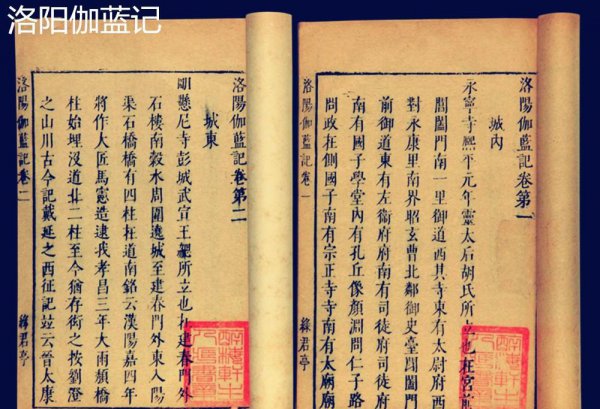 洛阳伽蓝记
洛陽伽藍記卷第一
城内
永寧寺熙平元年靈太后胡氏所立也在宮前
閶闔門南一里御道西其寺東有太尉府西
對永康里南界昭玄曹北鄰御史臺閶闔門
前御道東有左衛府府南有司徒府司徒府
南有國子學堂内有孔丘像顔淵問仁子路
問政在側國子南有宗正寺寺南有太廟廟
洛陽伽藍記卷一
綠君亭
洛陽伽藍記卷第二
城東
明懸尼寺彭城武宣王勰所立也在建春門外
石樓南穀水周圍遶城至建春門外東入陽
渠石橋橋有四柱在道南銘云漢陽嘉四年
將作大匠馬憲造逮我孝昌三年大雨頹橋
柱始埋沒道北二柱至今猶存衒之按劉澄
之山川古今記戴延之西征記竝云晉太康
洛陽伽藍記卷二
綠君亭